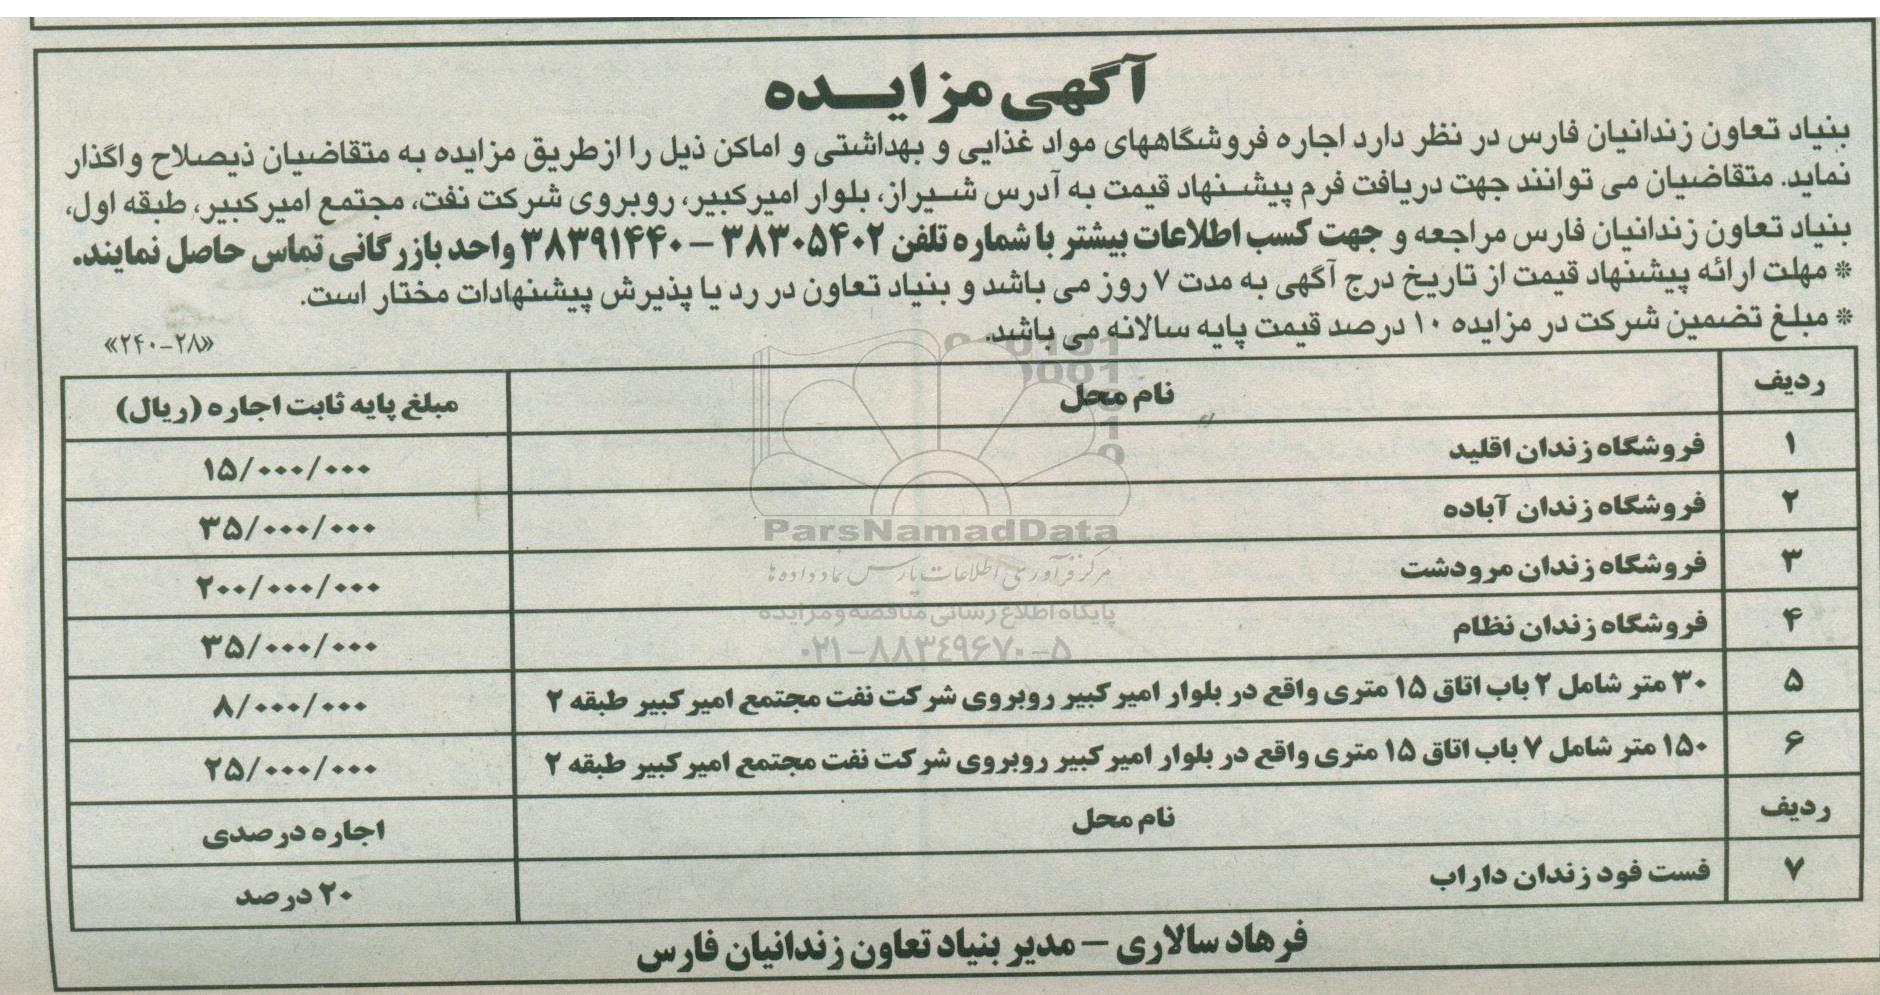 آگهی مزایــده
بنیاد تعاون زندانیان فارس در نظر دارد اجاره فروشگاههای مواد غذایی و بهداشتی و اماکن ذیل را ازطریق مزایده به متقاضیان ذیصلاح واگذار
نماید. متقاضیان می توانند جهت دریافت فرم پیشنهاد قیمت به آدرس شیراز، بلوار امیرکبیر، روبروی شرکت نفت، مجتمع امیرکبیر، طبقه اول،
بنیاد تعاون زندانیان فارس مراجعه و جهت کسب اطلاعات بیشتر با شماره تلفن ۳۸۳۰۵۴۰۲ – ۳۸۳۹۱۴۴۰ واحد بازرگانی تماس حاصل نمایند.
* مهلت ارائه پیشنهاد قیمت از تاریخ درج آگهی به مدت ۷ روز می باشد و بنیاد تعاون در رد یا پذیرش پیشنهادات مختار است.
* مبلغ تضمین شرکت در مزایده ۱۰ درصد قیمت پایه سالانه می باشد.
«۲۴۰-۲۸»
ردیف نام محل مبلغ پایه ثابت اجاره (ریال)
۱ فروشگاه زندان اقلید ۱۵/۰۰۰/۰۰۰
۲ فروشگاه زندان آباده ۳۵/۰۰۰/۰۰۰
۳ فروشگاه زندان مرودشت ۲۰۰/۰۰۰/۰۰۰
۴ فروشگاه زندان نظام ۳۵/۰۰۰/۰۰۰
۵ ۳۰ متر شامل ۲ باب اتاق ۱۵ متری واقع در بلوار امیر کبیر روبروی شرکت نفت مجتمع امیر کبیر طبقه ۲ ۸/۰۰۰/۰۰۰
۶ ۱۵۰ متر شامل ۷ باب اتاق ۱۵ متری واقع در بلوار امیر کبیر روبروی شرکت نفت مجتمع امیر کبیر طبقه ۲ ۲۵/۰۰۰/۰۰۰
ردیف نام محل اجاره درصدی
۷ فست فود زندان داراب ۲۰ درصد
فرهاد سالاری – مدیر بنیاد تعاون زندانیان فارس
ParsNamadData
مرکز فرآوری اطلاعات پارس نماد داده ها
پایگاه اطلاع رسانی مناقصه و مزایده
۰۲۱-۸۸۳۴۹۶۷۰-۵